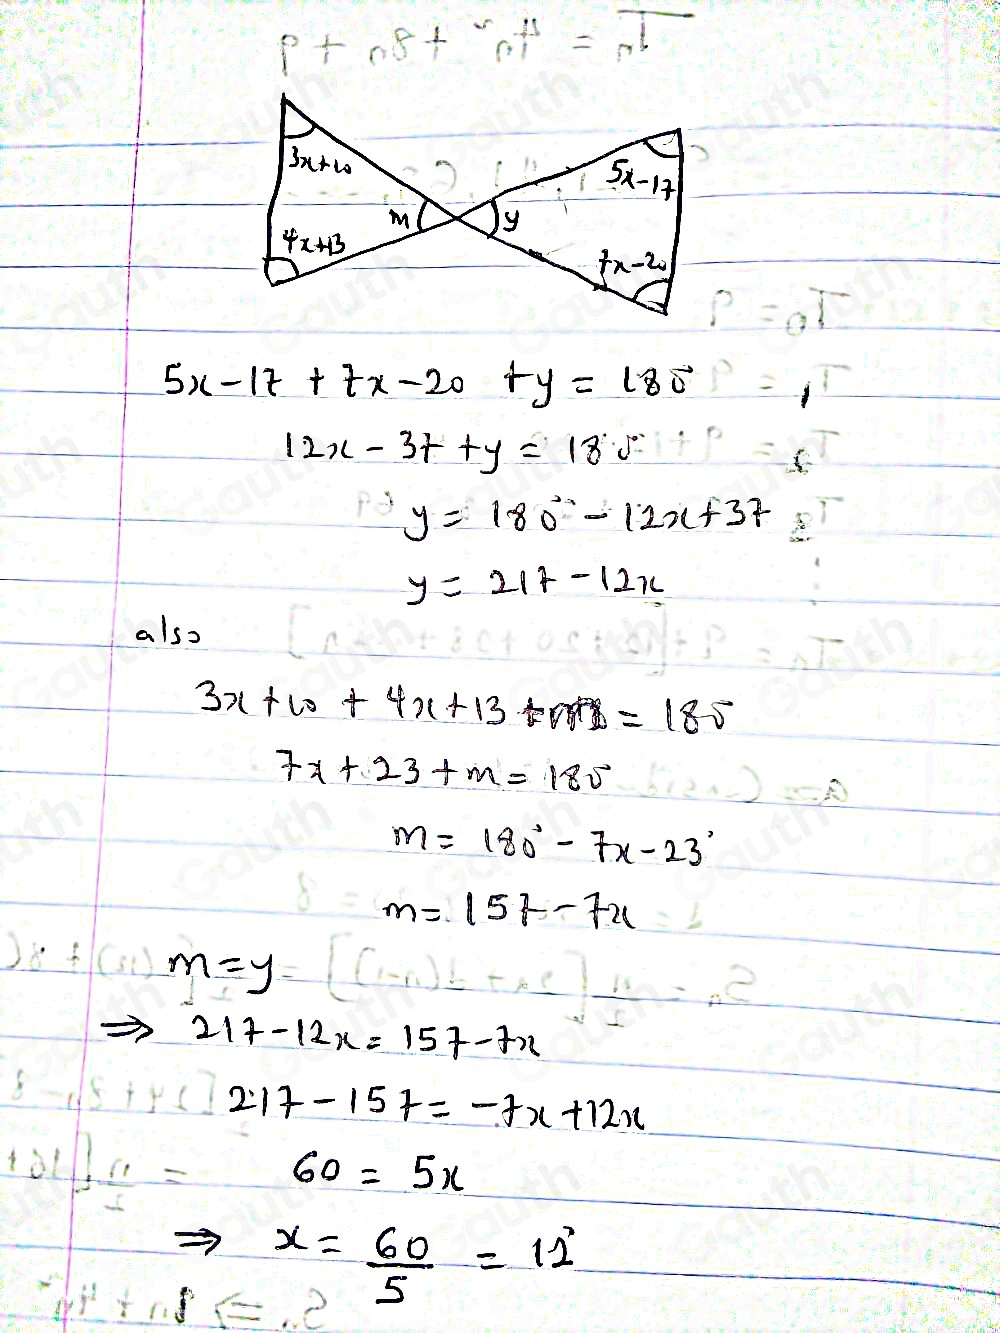 3x+10
5x-17
m
y
4x+13
7x-20
5x-17 + 7x-20 + y = 180°
12x - 37 + y = 180
y = 180° - 12x + 37
y = 217 - 12x
also
3x+10 + 4x+13 +m = 180
7x + 23 + m = 180
m = 180° - 7x - 23°
m = 157 - 7x
m = y
⇒ 217 - 12x = 157 - 7x
217 - 157 = -7x + 12x
60 = 5x
⇒ x = 60/5 = 12°